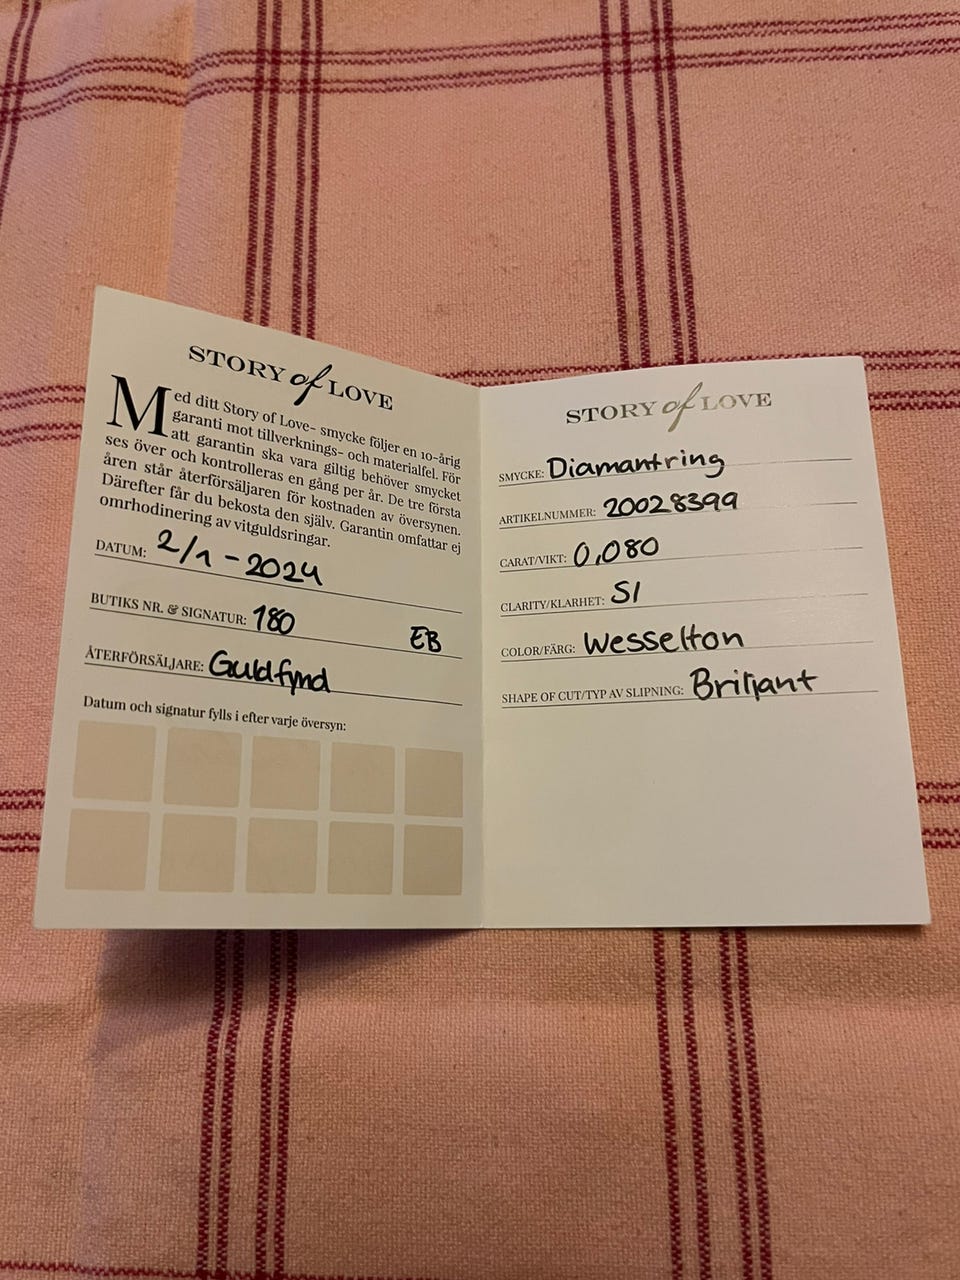 STORY of LOVE
Med ditt Story of Love- smycke följer en 10-årig
garanti mot tillverknings- och materialfel. För
att garantin ska vara giltig behöver smycket
ses över och kontrolleras en gång per år. De tre första
åren står återförsäljaren för kostnaden av översynen.
Därefter får du bekosta den själv. Garantin omfattar ej
omrhodinering av vitguldsringar.
DATUM: 2/1-2024
BUTIKS NR. & SIGNATUR: 180 EB
ÅTERFÖRSÄLJARE: Guldfynd
Datum och signatur fylls i efter varje översyn:
STORY of LOVE
SMYCKE: Diamantring
ARTIKELNUMMER: 20028399
CARAT/VIKT: 0,080
CLARITY/KLARHET: SI
COLOR/FÄRG: Wesselton
SHAPE OF CUT/TYP AV SLIPNING: Briljant